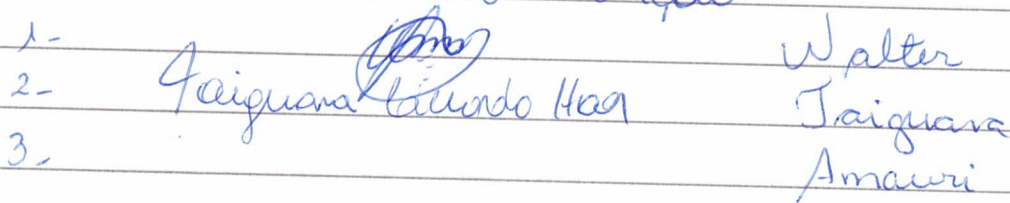 1- Walter
2- Taiguara Haa Taiguara
3- Amauri